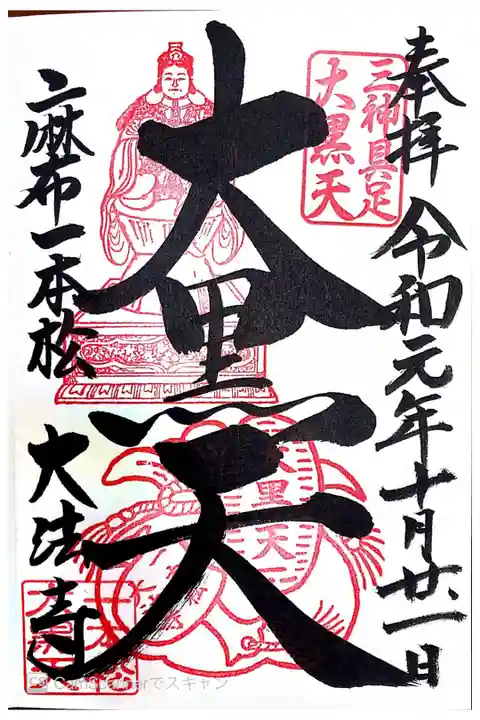 奉拝 令和元年十月廿一日
三神具足
大黒天
大黒天
大黒天
麻布一本松 大法寺
CamScannerでスキャン